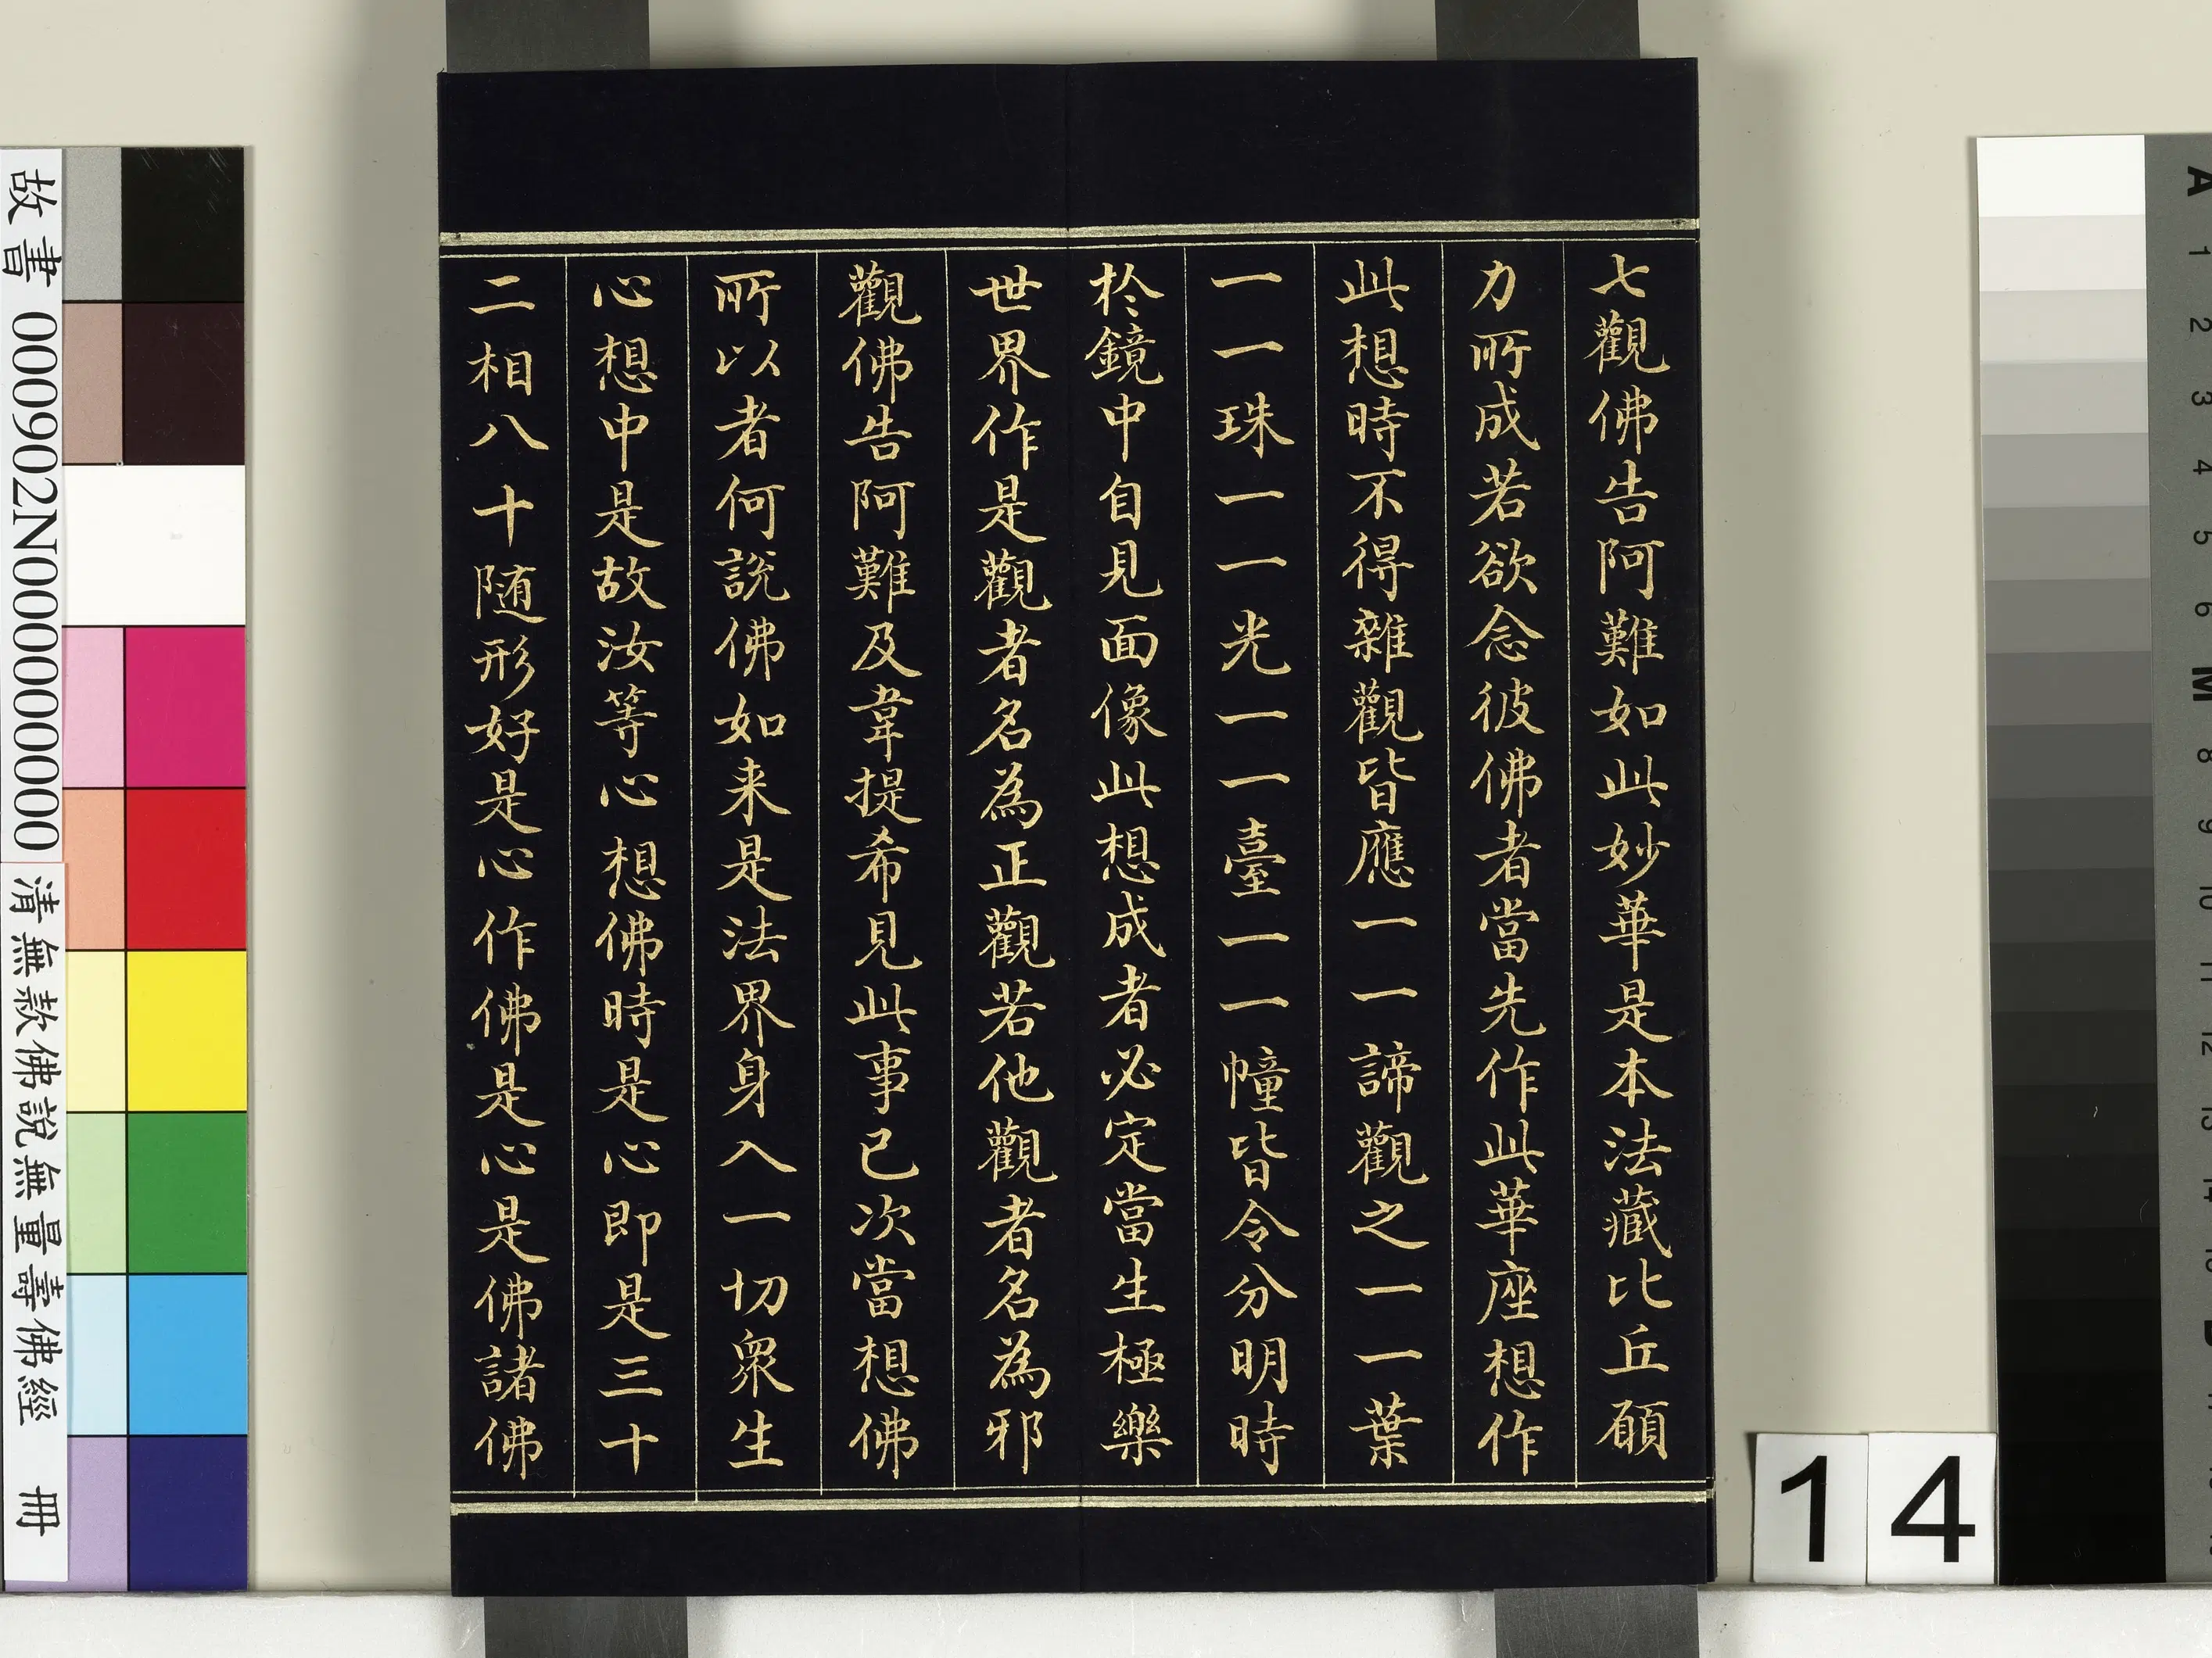 七觀佛告阿難如此妙華是本法藏比丘願
力所成若欲念彼佛者當先作此華座想作
此想時不得雜觀皆應一一諦觀之一一葉
一一珠一一光一一臺一一幢皆令分明時
於鏡中自見面像此想成者必定當生極樂
世界作是觀者名為正觀若他觀者名為邪
觀佛告阿難及韋提希見此事已次當想佛
所以者何說佛如来是法界身入一切眾生
心想中是故汝等心想佛時是心即是三十
二相八十随形好是心作佛是心是佛諸佛
故書 000902N000000000
清無款佛說無量壽佛經 冊
14
A 1 2 3 4 5 6 M 8 9 10 11 12 13 14 15 B